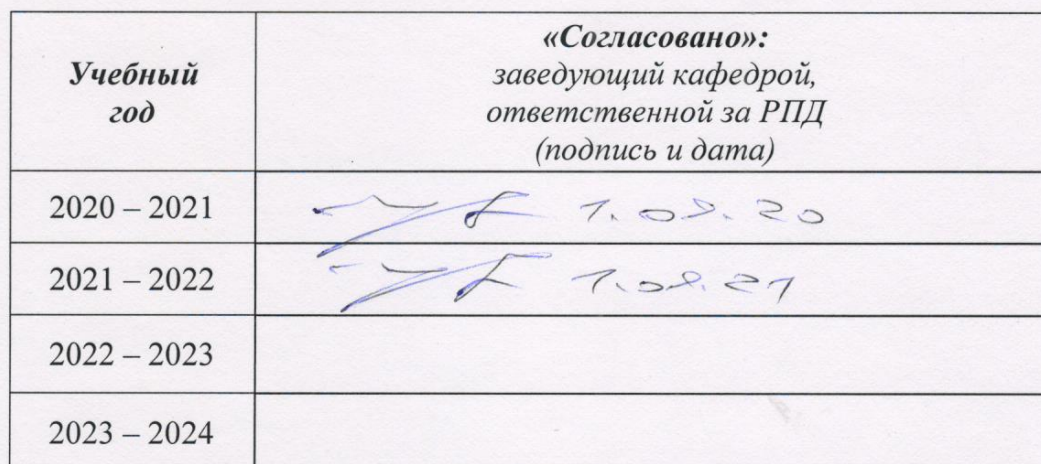 Учебный
год
«Согласовано»:
заведующий кафедрой,
ответственной за РПД
(подпись и дата)
2020 – 2021 1.09.20
2021 – 2022 1.09.21
2022 – 2023
2023 – 2024